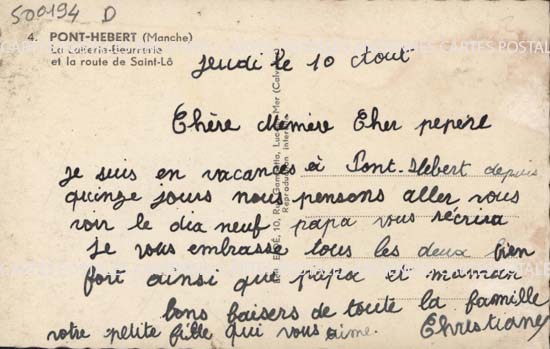 500194 D
4. PONT-HEBERT (Manche)
La Laiterie-Beurrerie
et la route de Saint-Lô
Jeudi le 10 Aout
Chère Mémère Cher pepère
je suis en vacances à Pont-Hebert depuis
quinze jours nous pensons aller vous
voir le dix neuf papa vous récrira
Je vous embrasse tous les deux bien
fort ainsi que papa et maman
bons baisers de toute la famille
votre petite fille qui vous aime. Christiane
10, Rue Gambetta, Luc-sur-Mer (Calv
Reproduction interdite
CARTES POSTALES